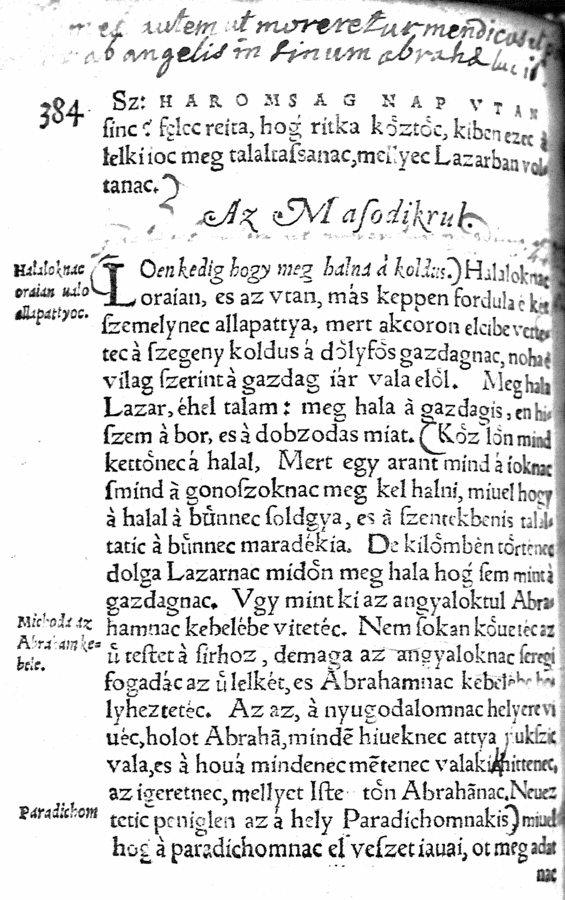 autem ut moreretur mendicus et p
ab angelis in sinum abrahæ luc 16.
384 Sz: HAROMSAG NAP VTAN
ſinc é felec reita, hog ritka kőztőc, kiben ezec à
lelki ioc meg talaltaſsanac, mellyec Lazarban vol-
tanac.)
Az Maſodikrul.
Halaloknac
oraian ualo
allapattyoc.
LOen kedig hogy meg halna à koldus.) Halaloknac
oraian, es az vtan, más keppen fordula è két
ſzemelynec allapattya, mert akcoron elcibe verte-
tec à ſzegeny koldus á dőlyfős gazdagnac, noha è
vilag ſzerint à gazdag iár vala elől. Meg hala
Lazar, éhel talam: meg hala à gazdagis, en hi-
ſzem à bor, es à dobzodas miat. (Kőz lőn mind
kettőnec á halal, Mert egy arant mind á ioknac
ſmind à gonoſzoknac meg kel halni, miuel hogy
à halal à bűnnec ſoldgya, es à ſzentekbenis talal-
tatic à bűnnec maradékia. De kilőmbèn tőrtenec
dolga Lazarnac midőn meg hala hog ſem mint à
gazdagnac. Vgy mint ki az angyaloktul Abra-
hamnac kebelébe vitetéc. Nem ſokan kőuetéc az
ű teſtet à ſirhoz, demaga az angyaloknac ſeregi
fogadác az ű lelkét, es Abrahamnac kebelébe
lyheztetéc. Az az, à nyugodalomnac helyere vi
uéc, holot Abrahã, mindẽ hiueknec attya
vala, es à houá mindenec mẽtenec valaki hittenec,
az igeretnec, mellyet Iſte tőn Abrahãnac, Neuez
tetic peniglen az á hely Paradichomnakis) miuel
hog à paradichomnac el veſzet iauai, ot meg adat
nac
Michoda az
Abraham ke=
bele.
Paradichom